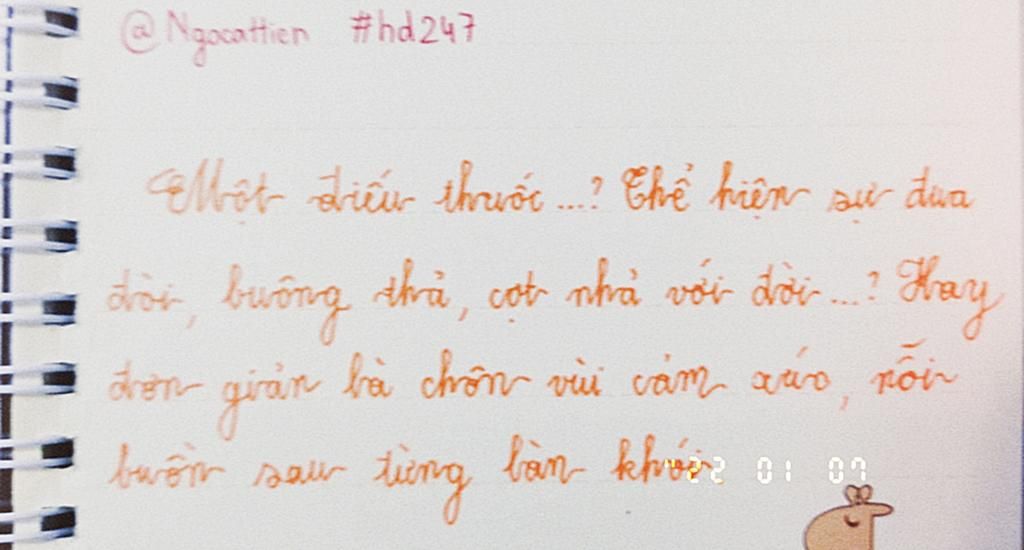 @Ngocattien #hd247
Một điếu thuốc...? Thể hiện sự đua
đòi, buông thả, cợt nhả với đời...? Hay
đơn giản là chôn vùi cảm xúc, nỗi
buồn sau từng làn khói.
'22 01 07